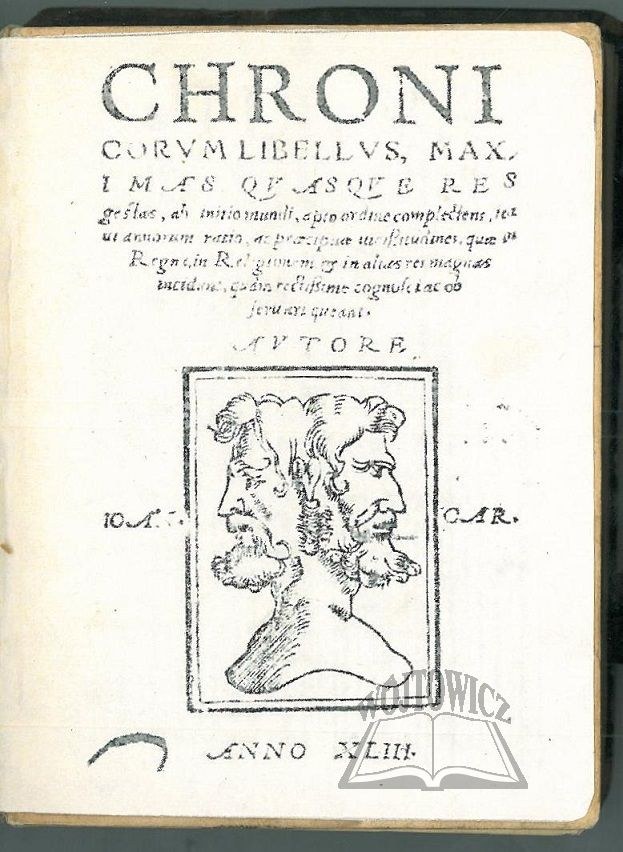 CHRONI
CORVM LIBELLVS, MAX,
IMAS QVASQVE RES
gestas, ab initio mundi, apto ordine complectens, ita
ut annorum ratio, ac præcipuæ uicissitudines, quæ in
Regna, in Religionem & in alias res magnas
incidunt, quàm rectissime cognosci ac ob
seruari queant.
AVTORE
IOAN. CAR.
ANNO XLIII.
WÓJTOWICZ